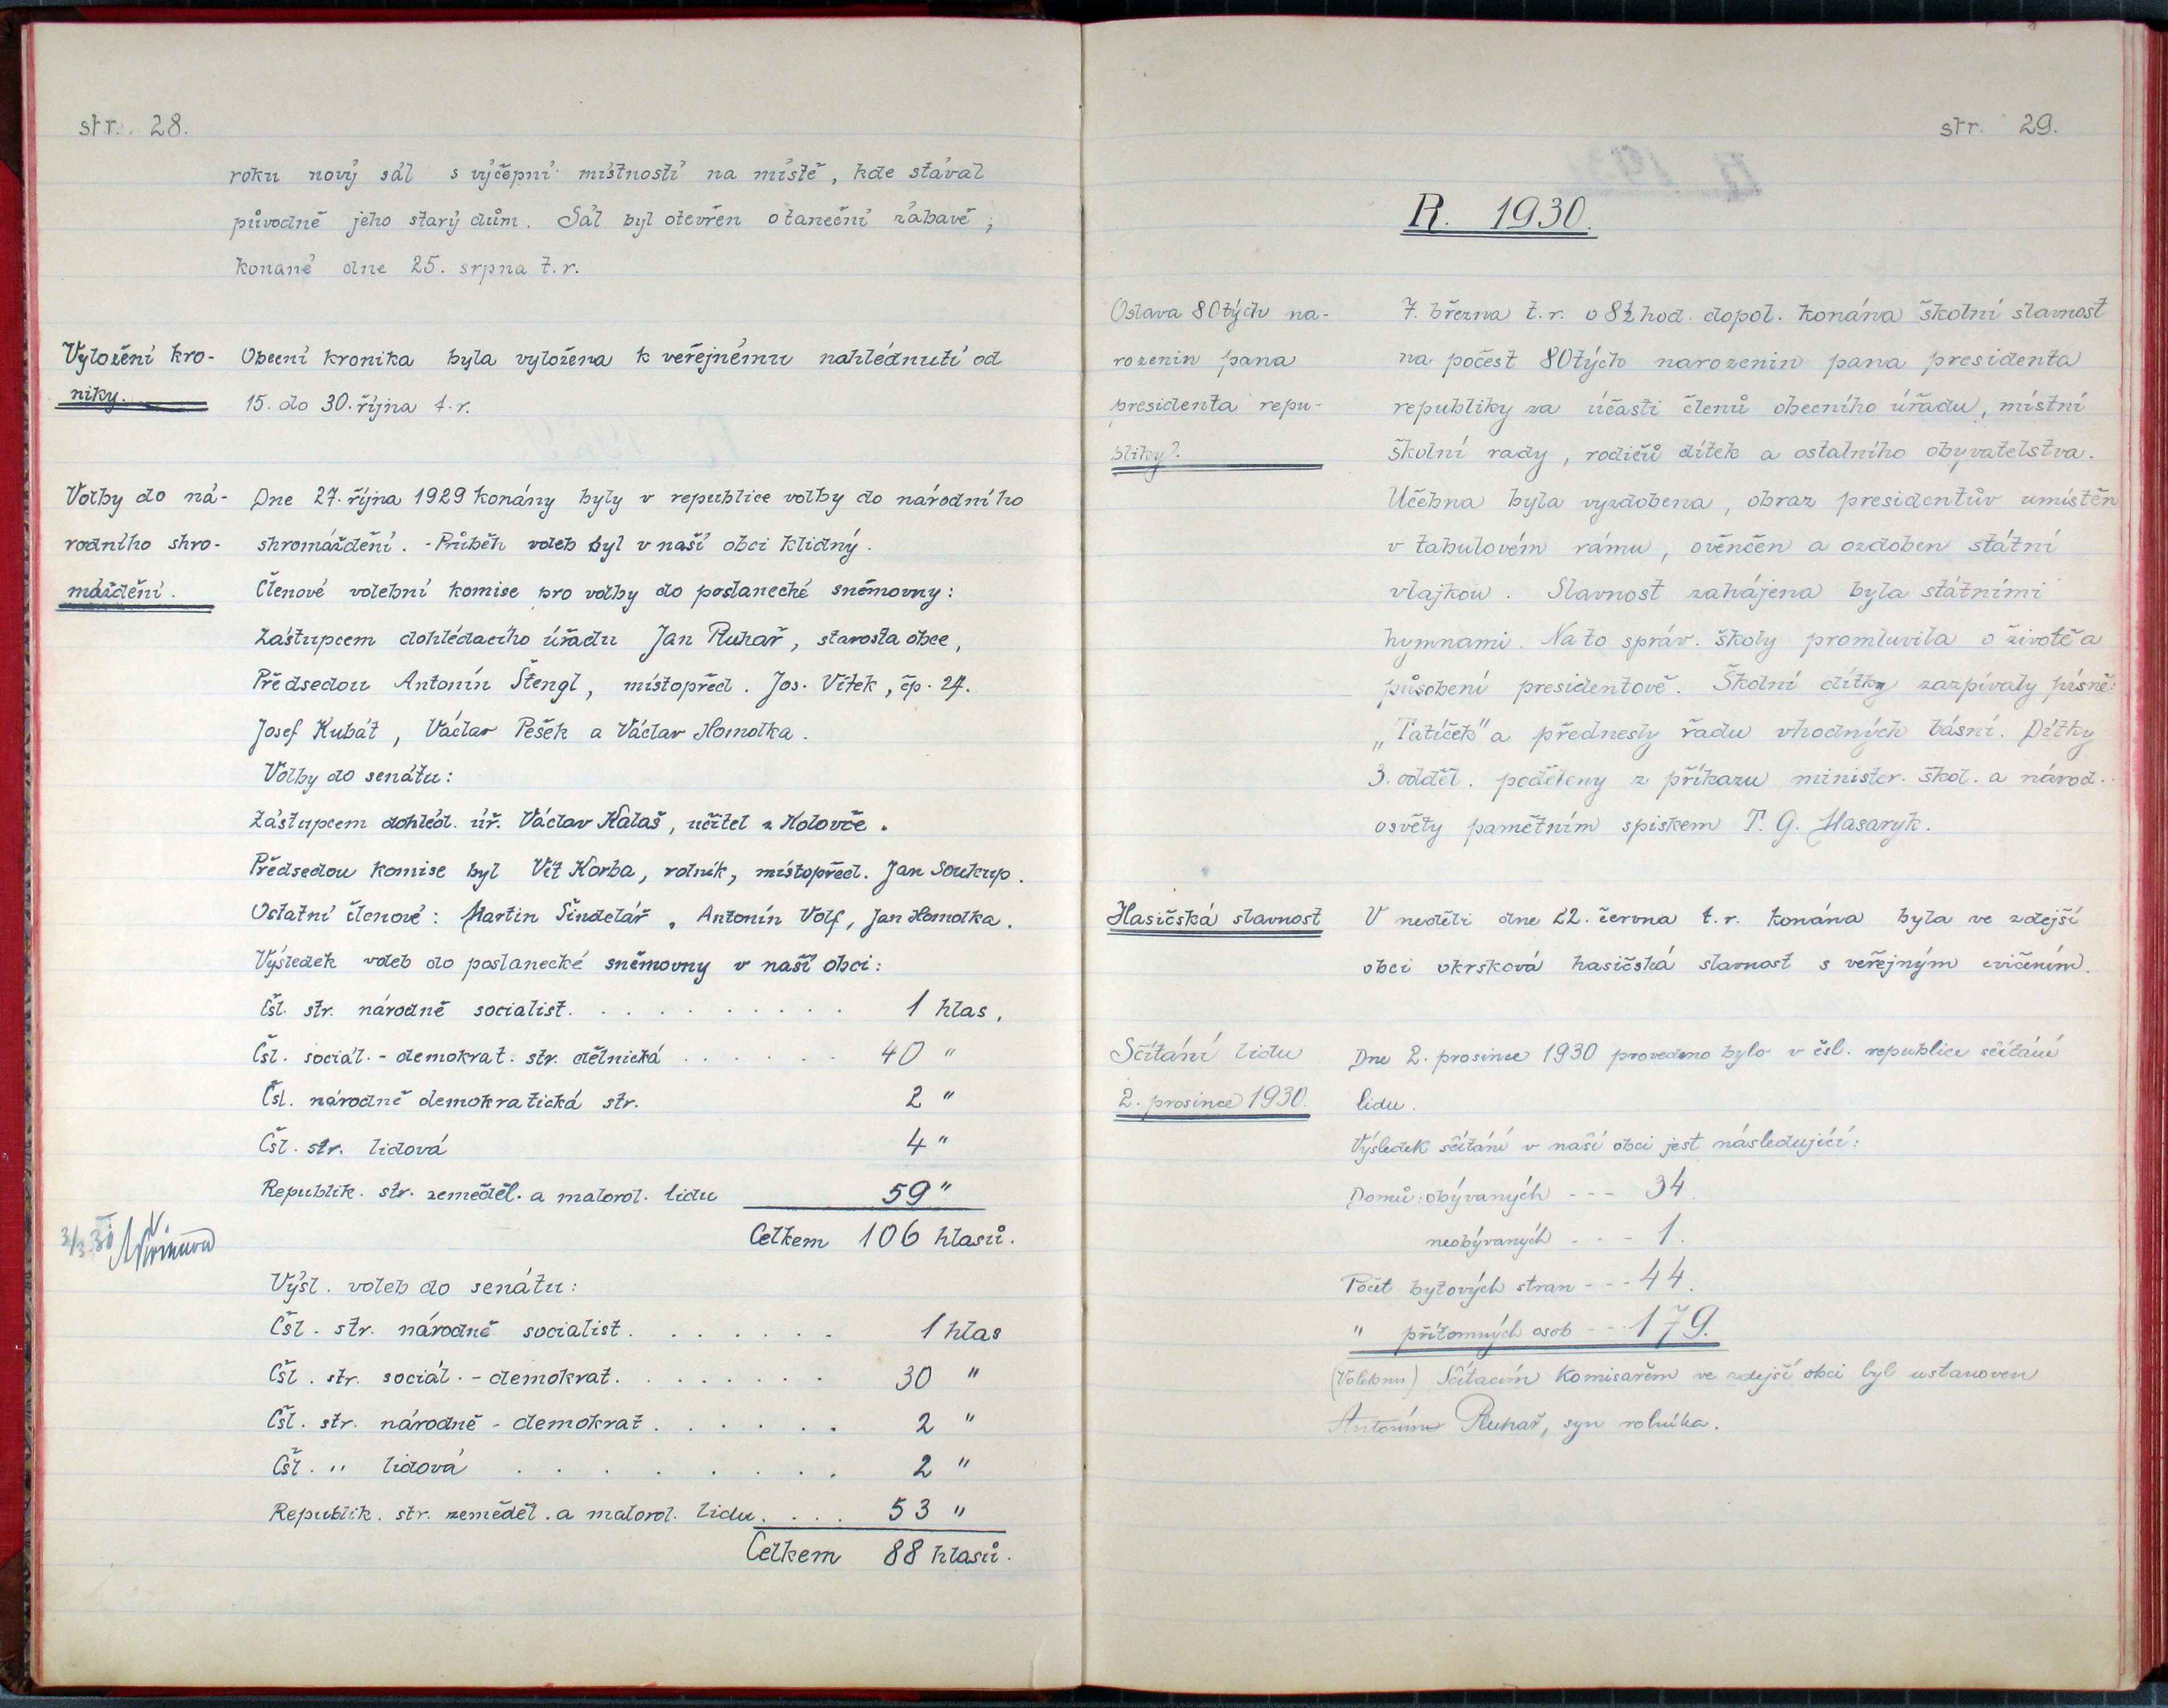 str. 28.
roku nový sál s výčepní místností na místě, kde stával
původně jeho starý dům. Sál byl otevřen o taneční zábavě,
konané dne 25. srpna t.r.
Vyložení kro-
niky.
Obecní kronika byla vyložena k veřejnému nahlédnutí od
15. do 30. října t.r.
Volby do ná-
rodního shro-
máždění.
Dne 27. října 1929 konány byly v republice volby do národního
shromáždění. - Průběh voleb byl v naší obci klidný.
Členové volební komise pro volby do poslanecké sněmovny:
Zástupcem dohlédacího úřadu Jan Pluhař, starosta obce,
Předsedou Antonín Štengl, místopřed. Jos. Vítek, čp. 24.
Josef Kubát, Václav Pešek a Václav Homolka.
Volby do senátu:
Zástupcem dohléd. úř. Václav Kalaš, učitel z Kolovče.
Předsedou komise byl Vít Korba, rolník, místopřed. Jan Soukup.
Ostatní členové: Martin Šindelář, Antonín Volf, Jan Homolka.
Výsledek voleb do poslanecké sněmovny v naší obci:
Čsl. str. národně socialist. . . . . . . . . . 1 hlas.
Čsl. sociál. - demokrat. str. dělnická . . . . . . 40 "
Čsl. národně demokratická str. 2 "
Čsl. str. lidová 4 "
Republik. str. zeměděl. a malorol. lidu 59 "
Celkem 106 hlasů.
3/3 30
Výsl. voleb do senátu:
Čsl. str. národně socialist. . . . . . . 1 hlas
Čsl. str. sociál. - demokrat. . . . . . . . 30 "
Čsl. str. národně - demokrat . . . . . . 2 "
Čsl. " lidová . . . . . . . 2 "
Republik. str. zeměděl. a malorol. lidu. . . . 53 "
Celkem 88 hlasů.
str. 29.
R. 1930.
Oslava 80tých na-
rozenin pana
presidenta repu-
bliky.
7. března t.r. o 8½ hod. dopol. konána školní slavnost
na počest 80tých narozenin pana presidenta
republiky za účasti členů obecního úřadu, místní
školní rady, rodičů dítek a ostatního obyvatelstva.
Učebna byla vyzdobena, obraz presidentův umístěn
v tabulovém rámu, ověnčen a ozdoben státní
vlajkou. Slavnost zahájena byla státními
hymnami. Na to správ. školy promluvila o životě a
působení presidentově. Školní dítky zazpívaly písně:
„Tatíček" a přednesly řadu vhodných básní. Dítky
3. odděl. poděleny z příkazu minister. škol. a národ.
osvěty pamětním spiskem T. G. Masaryk.
Hasičská slavnost
V neděli dne 22. června t.r. konána byla ve zdejší
obci okrsková hasičská slavnost s veřejným cvičením.
Sčítání lidu
2. prosince 1930.
Dne 2. prosince 1930 provedeno bylo v čsl. republice sčítání
lidu.
Výsledek sčítání v naší obci jest následující:
Domů: obývaných - - - 34
neobývaných - - - 1.
Počet bytových stran - - - 44.
" přítomných osob - - - 179.
Sčítacím komisařem ve zdejší obci byl ustanoven
Antonín Pluhař, syn rolníka.